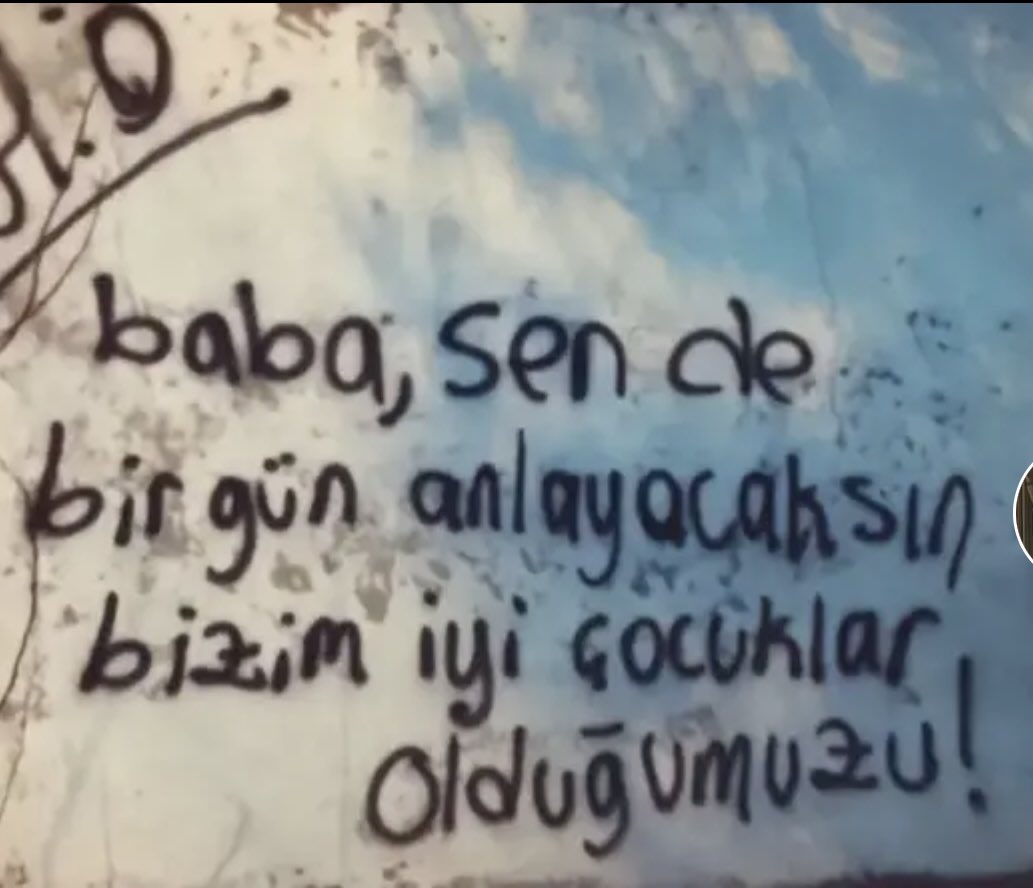 baba, sen de
bir gün anlayacaksın
bizim iyi çocuklar
olduğumuzu!